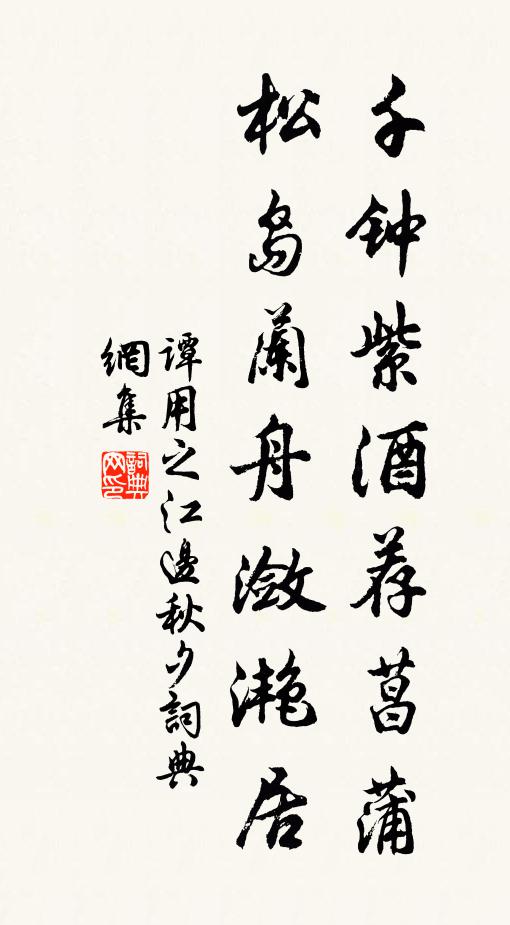 千钟紫酒荐菖蒲
松岛兰舟潋滟居
谭用之江邊秋夕詞典
網集
詞典
网印